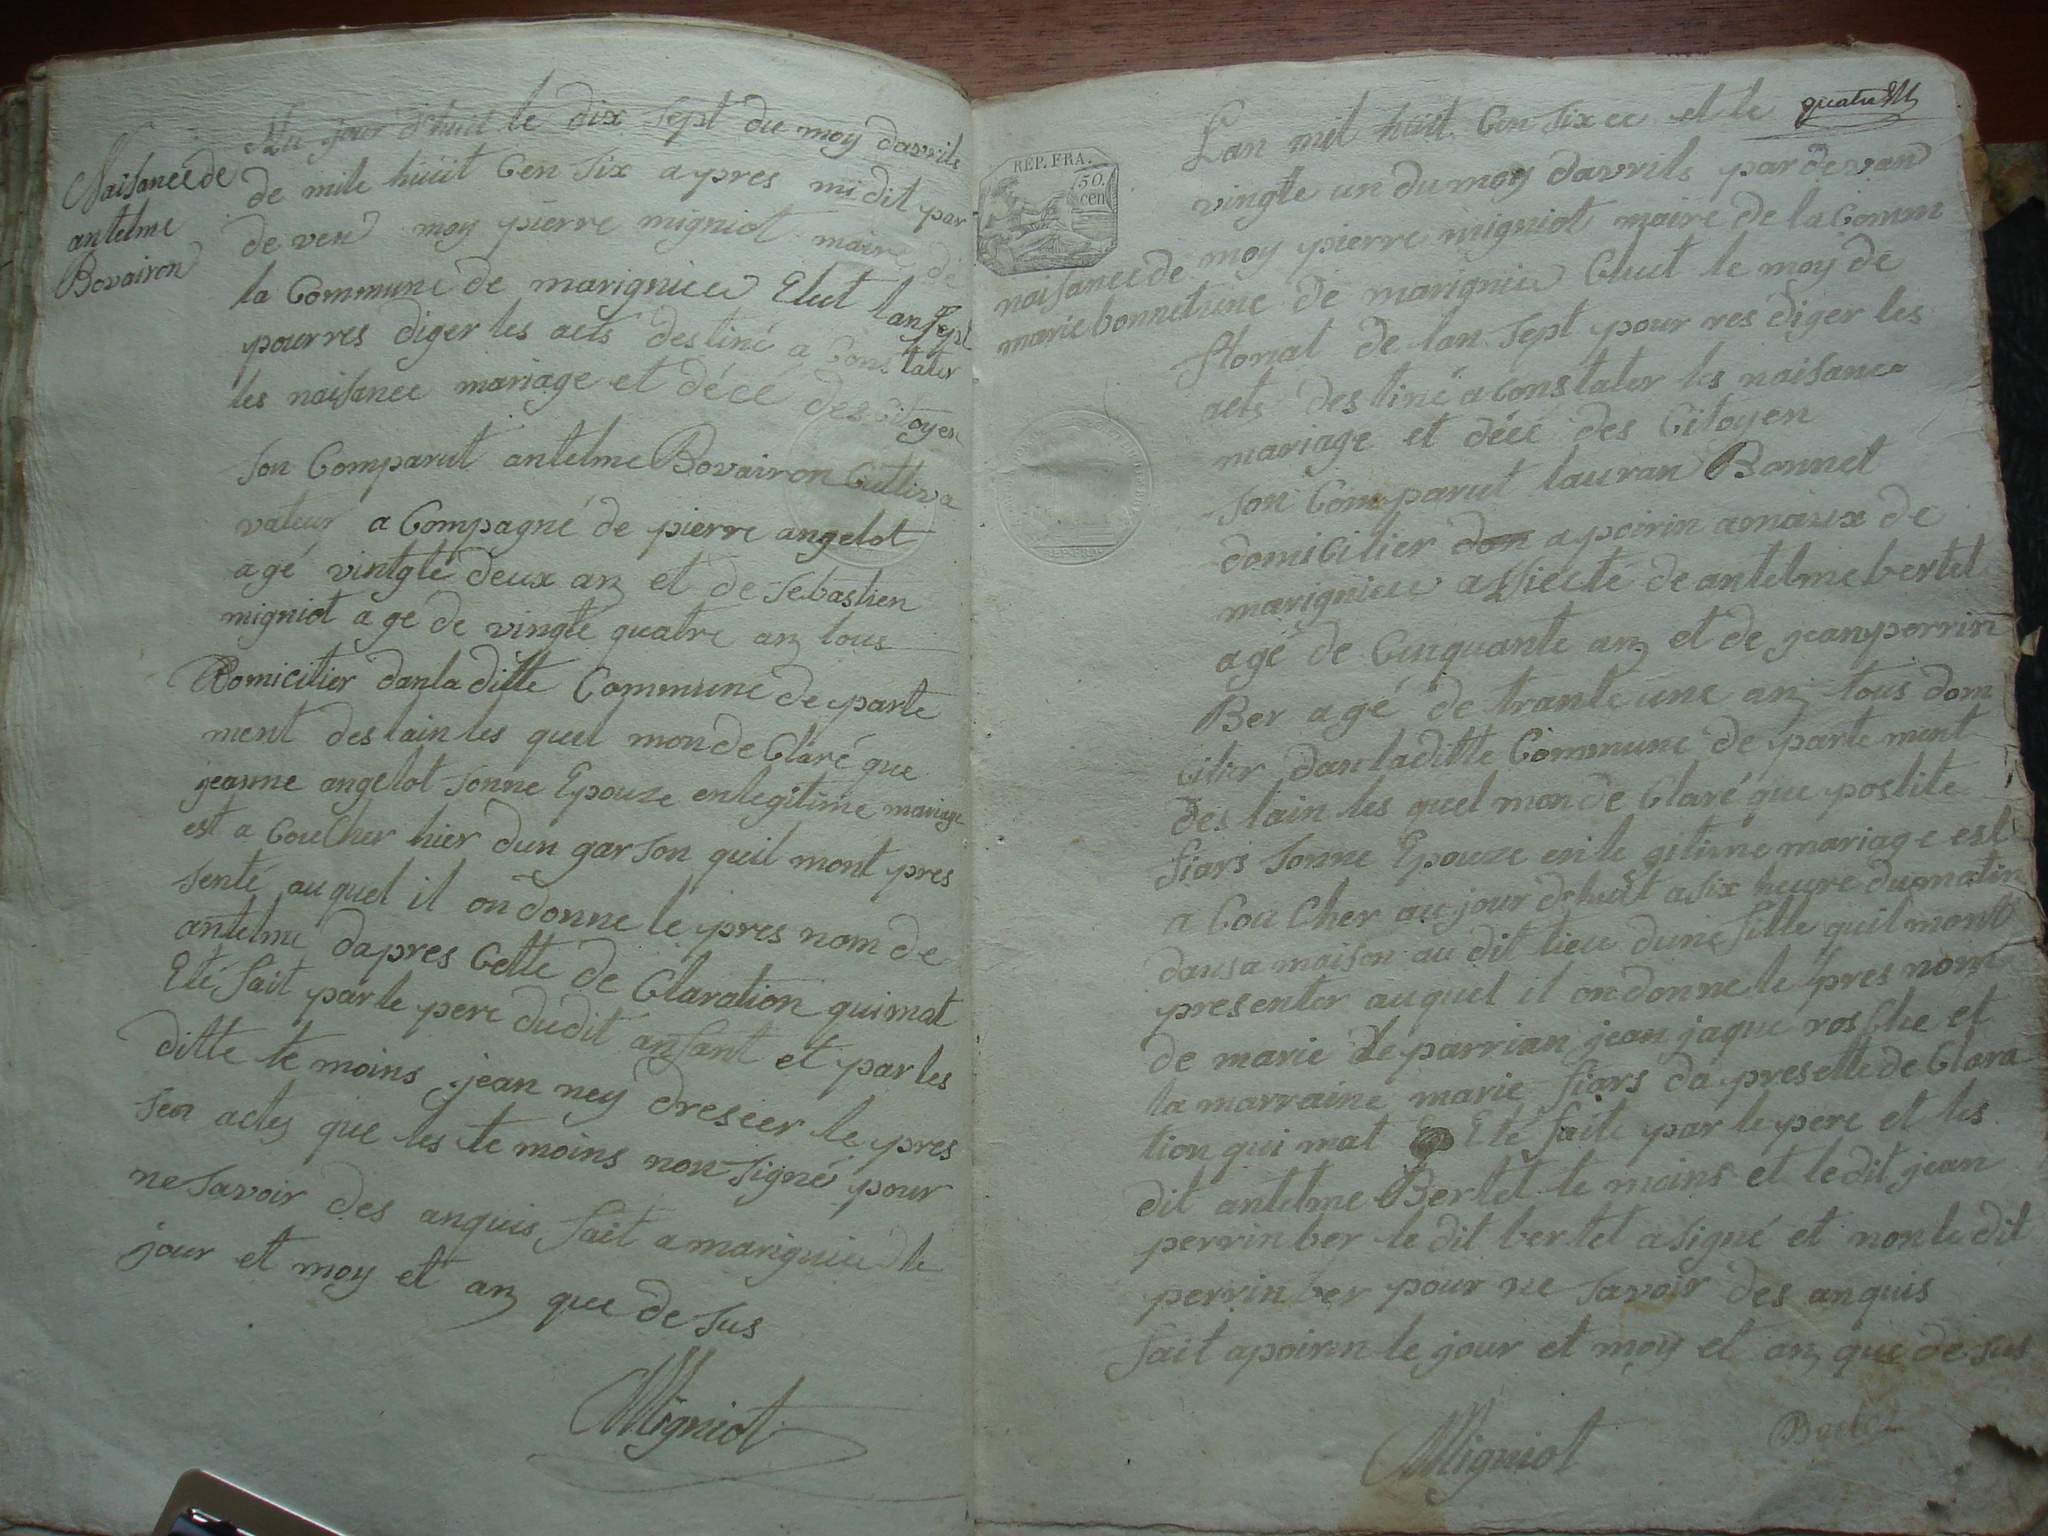 Naisance de
antelme
Bovairon
Au jour dhuit le dix sept du moy davrils
de mile huit Cen six apres midit par
de ven moy pierre migniot maire de
la Commune de marignieu Elut lan sept
pour res diger les acts destiné a Constater
les naisance mariage et décé des Citoyen
son Comparut antelme Bovairon Cultiva
vateur a Compagné de pierre angelot
agé vintgte deux an et de sebastien
migniot age de vingte quatre an tous
Domicilier dan la ditte Commune de parte
ment des lain les quel mon de Claré que
jeanne angelot sonne Epouze en legitime mariage
est a CouCher hier dun garson quil mont pres
senté auquel il on donne le pres nom de
antelme dapres Cette de Claration qui mat
Eté fait par le pere du dit ansant et par les
ditte te moins jean ney dreseer le pres
sen actes que les te moins non signé pour
ne savoir des anquis fait a marignieu le
jour et moy et an que de sus
Migniot
quatre
REP. FRA.
50.
cen
naisance de
marie bonnet
Lan mil huit Cen six ce et le
vingte un du moy davrils par devan
moy pierre migniot maire de la Comm
une de marignieu Elut le moy de
floreal de lan sept pour res diger les
acts destiné a constater les naisance
mariage et décé des Citoyen
son Comparut lauran Bonnet
domicilier don a poirin amaux de
marignieu assiecte de antelme bertet
agé de Cinquante an et de jean perrin
Ber agé de trante une an tous dom
cilier dan laditte Commune de parte ment
des lain les quel mon de Claré que postite
fiars sonne Epouze en le gitime mariage est
a CouCher au jour dehuit a six heure du matin
dansa maison au dit lieu dune fille quil mont
presenter auquel il on donne le pres nom
de marie le parrian jean jaque rosChe et
la marraine marie fiars da pres ette de Clara
tion qui mat Eté faite par le pere et les
dit antelme Bertet te moins et le dit jean
perrin ber le dit bertet a signé et non le dit
perrin ber pour ne savoir des anquis
fait a poirin le jour et moy et an que de sus
Migniot